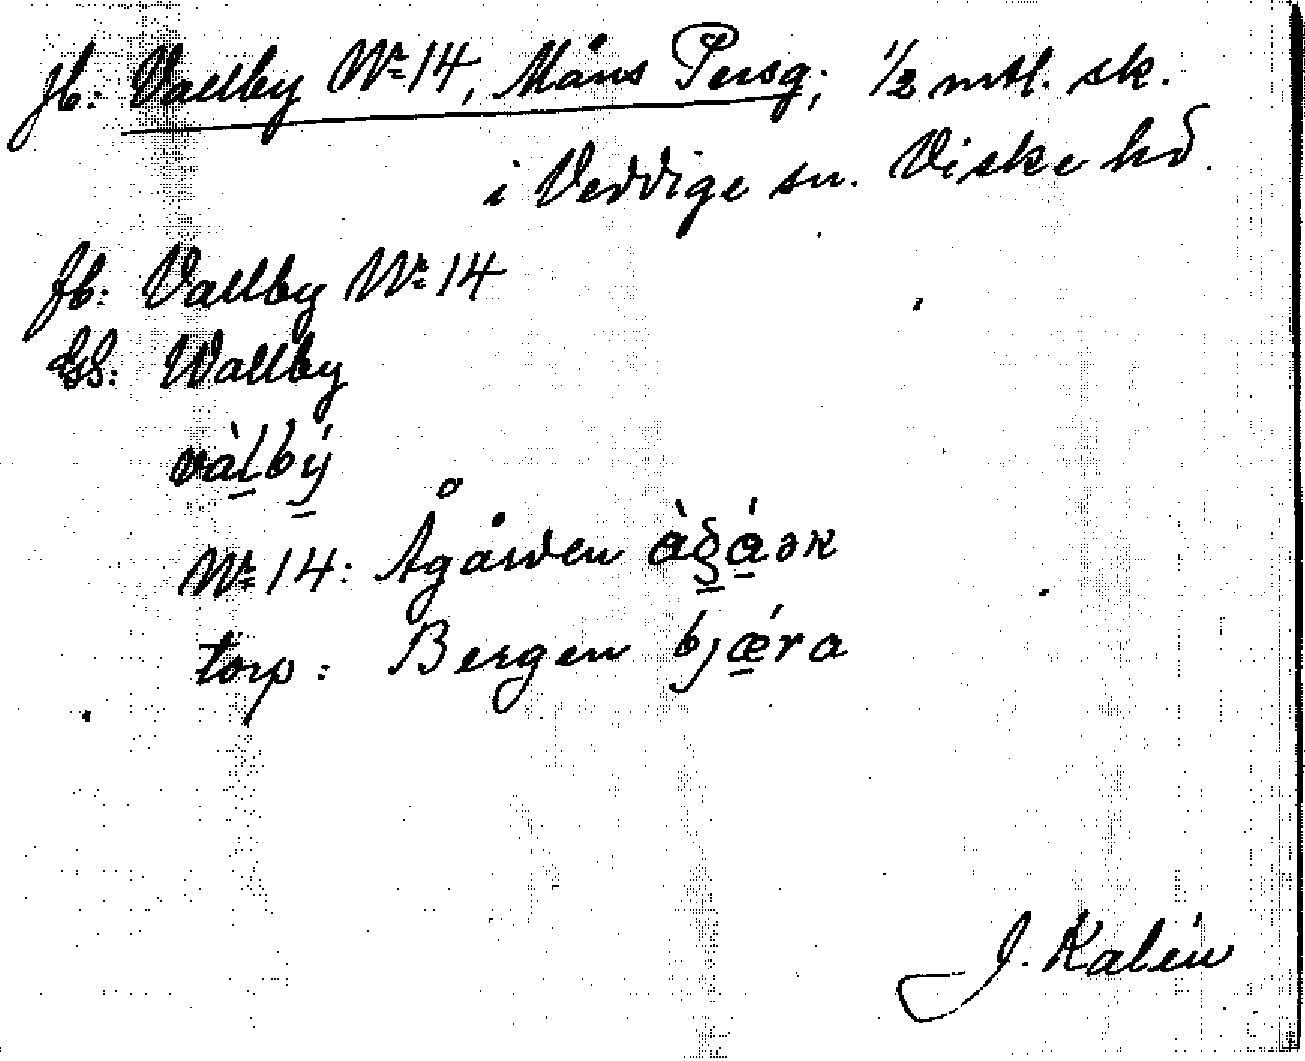 Jb: Vallby Nr 14, Måns Persg; 1/2 mtl. sk.
i Veddige sn. Viske hd.
Jb: Vallby Nr 14
GS: Wallby
vàlbý
Nr 14: Ågården
torp: Bergen bjǽra
J. Kalén